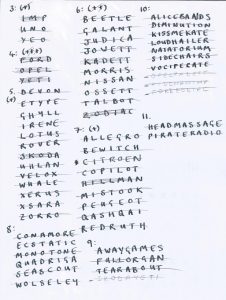 3: (+)
IMP
UNO
YTO
4: (+++)
FORD
OPEL
YETI
5: DEVON
(+) ETYPE
GHYLL
IRENE
LOTUS
ROVER
SKODA
UHLAN
VELOX
WHALE
XERUS
XSARA
ZORRO
6: (++)
BEETLE
GALANT
JUDICA
JOWETT
KADETT
MORRIS
NISSAN
OSSETT
TALBOT
ZODIAC
7: (+)
ALLEGRO
BEWITCH
CITROEN
COPILOT
HILLMAN
MISTOOK
PEUGEOT
QASHQAI
REDRUTH
8: CONAMORE
ECSTATIC
MONOTONE
QUADRIGA
SEASCOUT
WOLSELEY
9: AWAYGAMES
FULLORGAN
TEARABOUT
10:
ALICEBANDS
DIMINUTION
KISSMEKATE
LOUDHAILER
NATATORIUM
SIDECHAIRS
VOCIFERATE
11.
HEADMASSAGE
PIRATERADIO